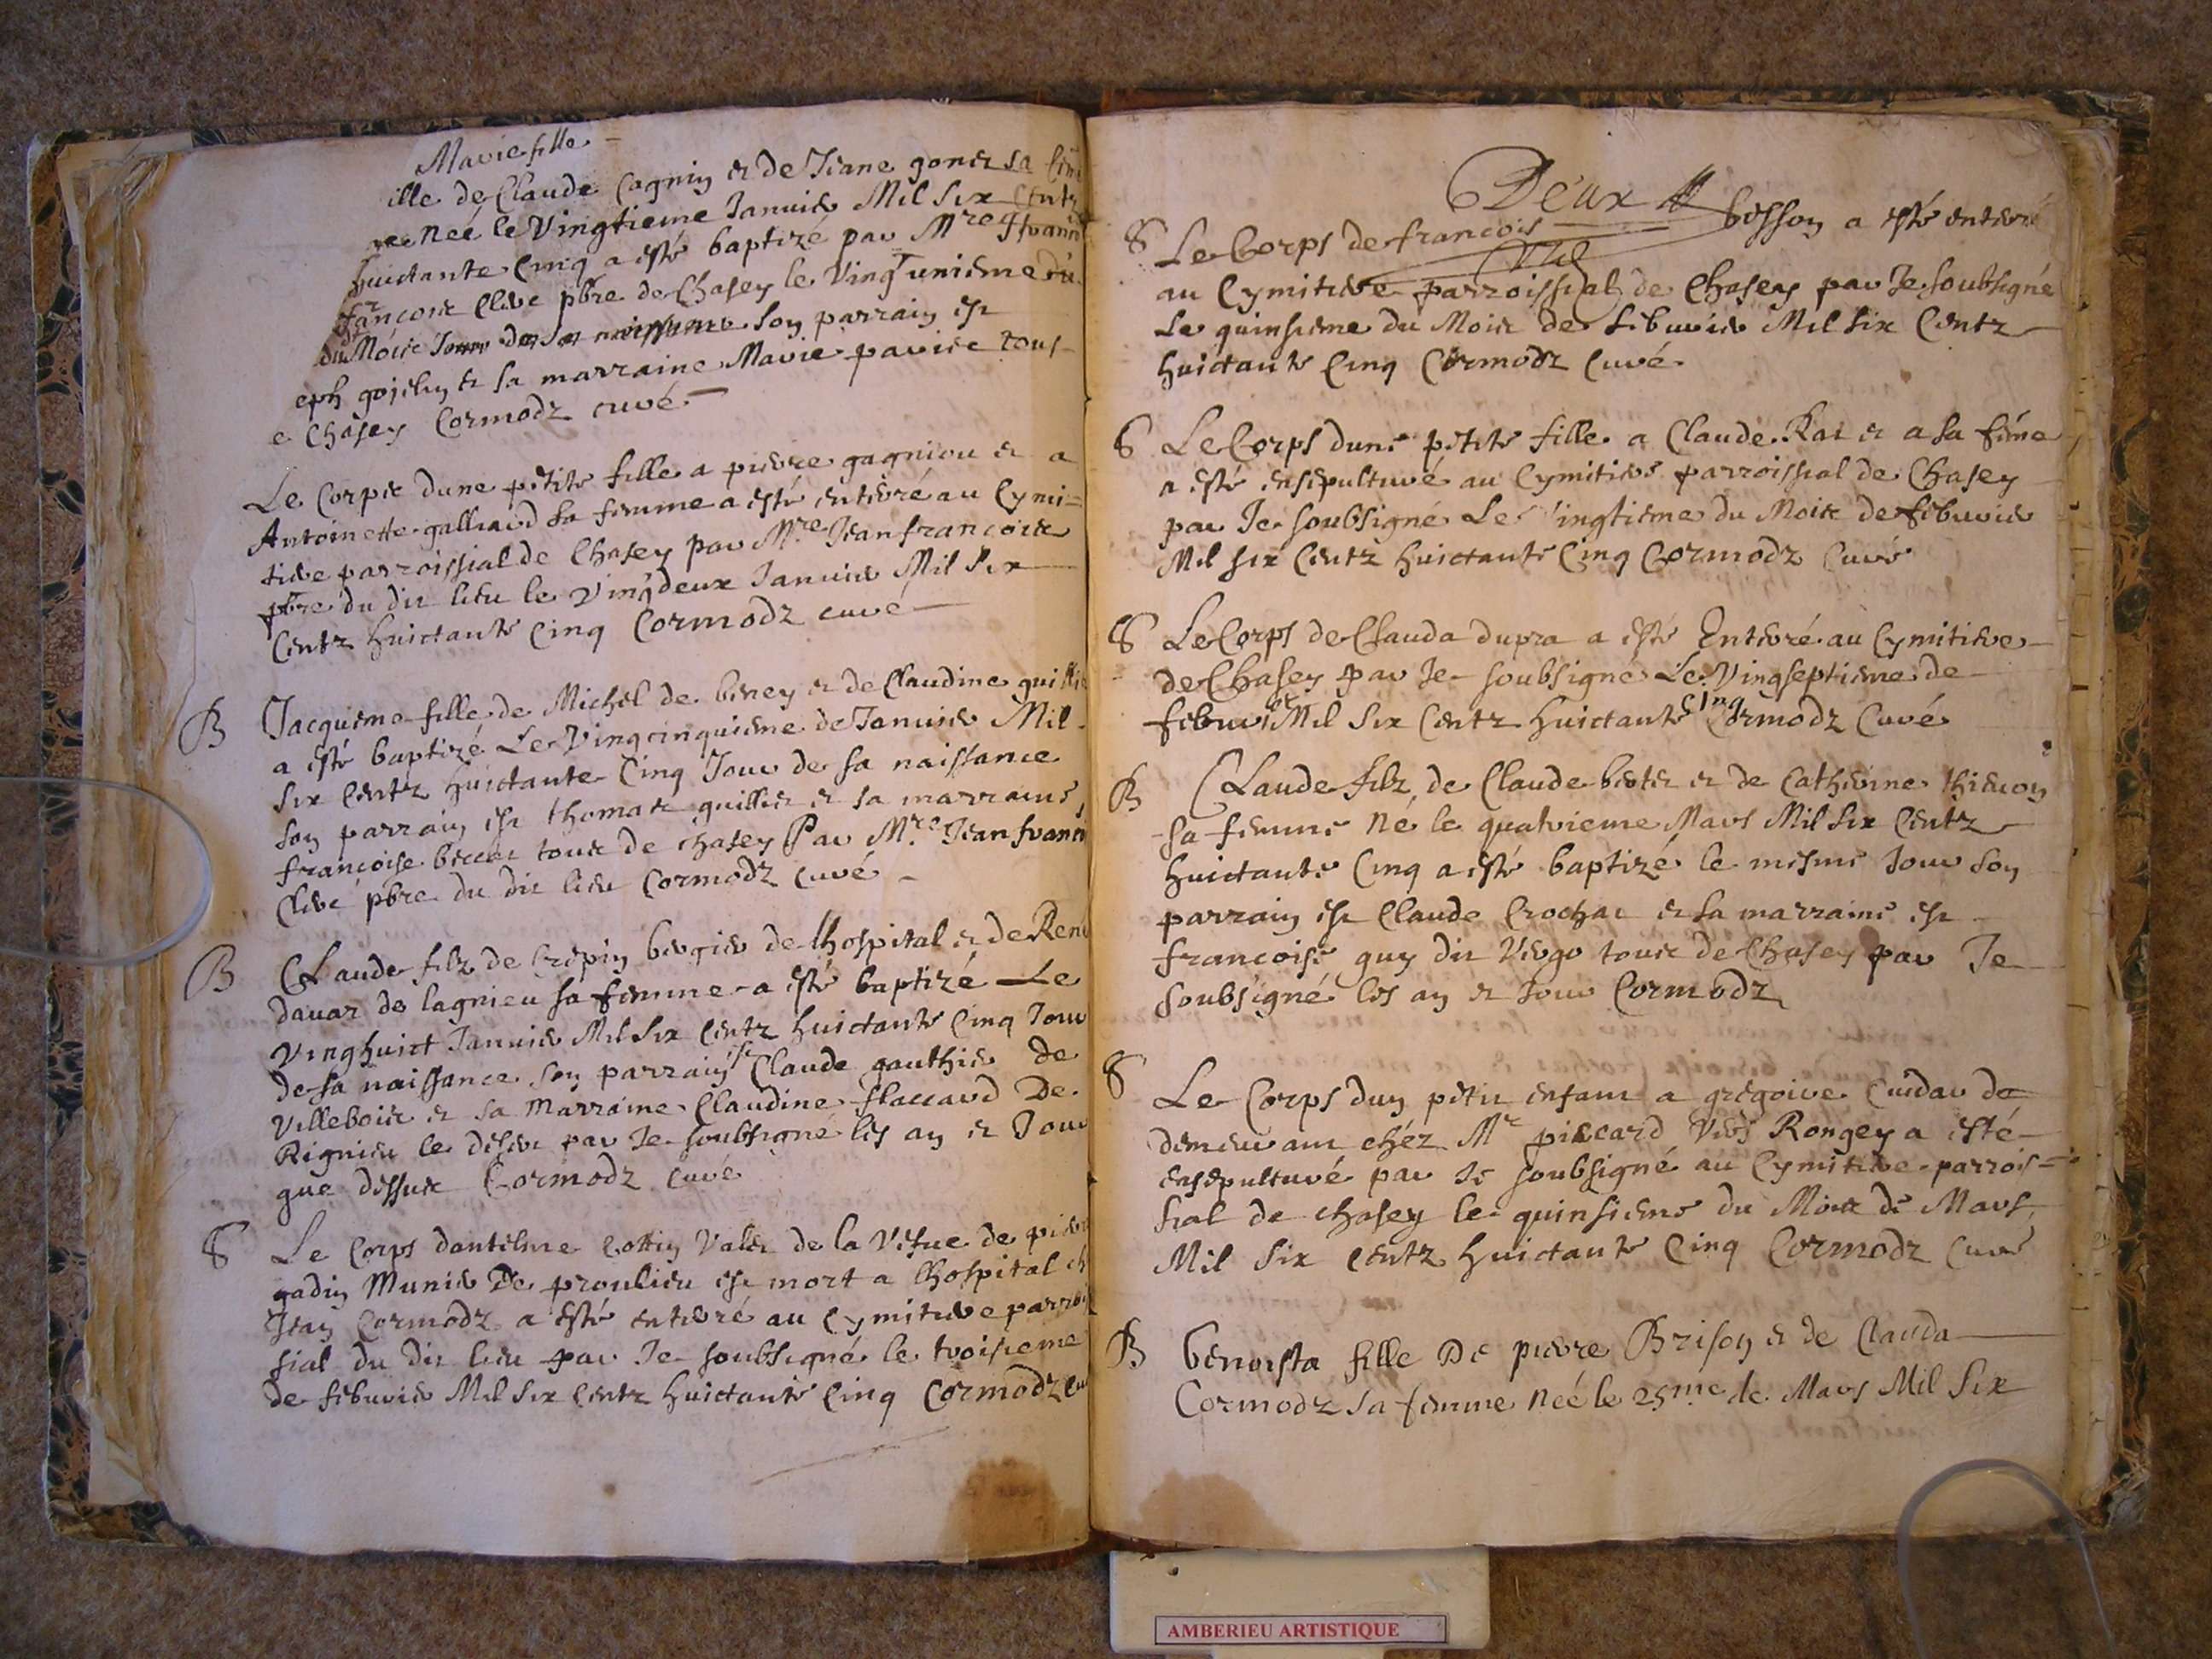 Marie fille
ille de Claude Cagnin et de Jeane gonet sa fem
née le Vingtieme Janvier Mil Six Centz
huictante Cinq a esté baptizé par Mre
francois Clere pbre de Chasey le Vingt unieme du
du Mois son parrain est
eph gojelin et sa marraine Marie parice tous
e Chasey Cormodz curé
Le Corps dune petite fille a pierre gagniou et a
Antoinette galliard sa femme a esté enterré au Cymi=
tiere parroissial de Chasey par Mre Jean francois
pbre du dit lieu le Vingt deux Janvier Mil Six
Centz huictante Cinq Cormodz curé
B Jacqueme fille de Michel de berey et de Claudine
a esté baptizé Le Vingcinquieme de Janvier Mil
Six Centz huictante Cinq Jour de sa naissance
son parrain est thomas guillier et sa marraine
francoise tous de chasey Par Mre Jean
Clere pbre du dit lieu Cormodz Curé
B Claude filz de Crepin bergier de lhospital et de
davar de lagnieu sa femme a esté baptizé Le
Vinghuict Janvier Mil Six Centz huictante Cinq Jour
de sa naissance son parrain est Claude gauthier de
Villebois et sa Marraine Claudine flaccard De
Rignieu le desert par Je soubsigné les an et Jour
que dessus Cormodz Curé
S Le Corps dantelme Cottin Valet de la Vefue de
gadin Munier De proulieu est mort a lhospital
Cormodz a esté enterré au Cymitiere
sial du dit lieu par Je soubsigné le troisieme
de febvrier Mil Six Centz huictante Cinq Cormodz
Deux
S Le Corps de francois besson a esté enterré
au Cymitiere parroissial de Chasey par Je soubsigné
Le quinsieme du Mois de febuvier Mil Six Centz
huictante Cinq Cormodz Curé
S Le Corps dune petite fille a Claude Rat et a sa feme
a esté ensepulturé au Cymitiere parroissial de Chasey
par Je soubsigné Le Vingtieme du Mois de febuvier
Mil six Centz huictante Cinq Cormodz Curé
S Le Corps de Clauda dupra a esté Enterré au Cymitiere
de Chasey par Je soubsigné Le Vingseptieme de
Mil Six Centz huictante Cinq Cormodz Curé
B Claude filz de Claude bertet et de Catherine thievon
sa femme Né le quatrieme Mars Mil Six Centz
huictante Cinq a esté baptizé le mesme Jour Son
parrain est Claude Crochat et sa marraine est
francoise guy dit Vergo tous de Chasey par Je
soubsigné les an et Jour Cormodz
S Le Corps dun petit enfant a gregoire Cuidar de
demeurant chéz Mr piccard Vers Rongey a esté
ensepulturé par Je soubsigné au Cymitiere parrois=
sial de chasey le quinsieme du Mois de Mars
Mil Six Centz huictante Cinq Cormodz Curé
B benoista fille De pierre Brison et de Clauda
Cormodz sa femme Née le 25me de Mars Mil Six
AMBERIEU ARTISTIQUE